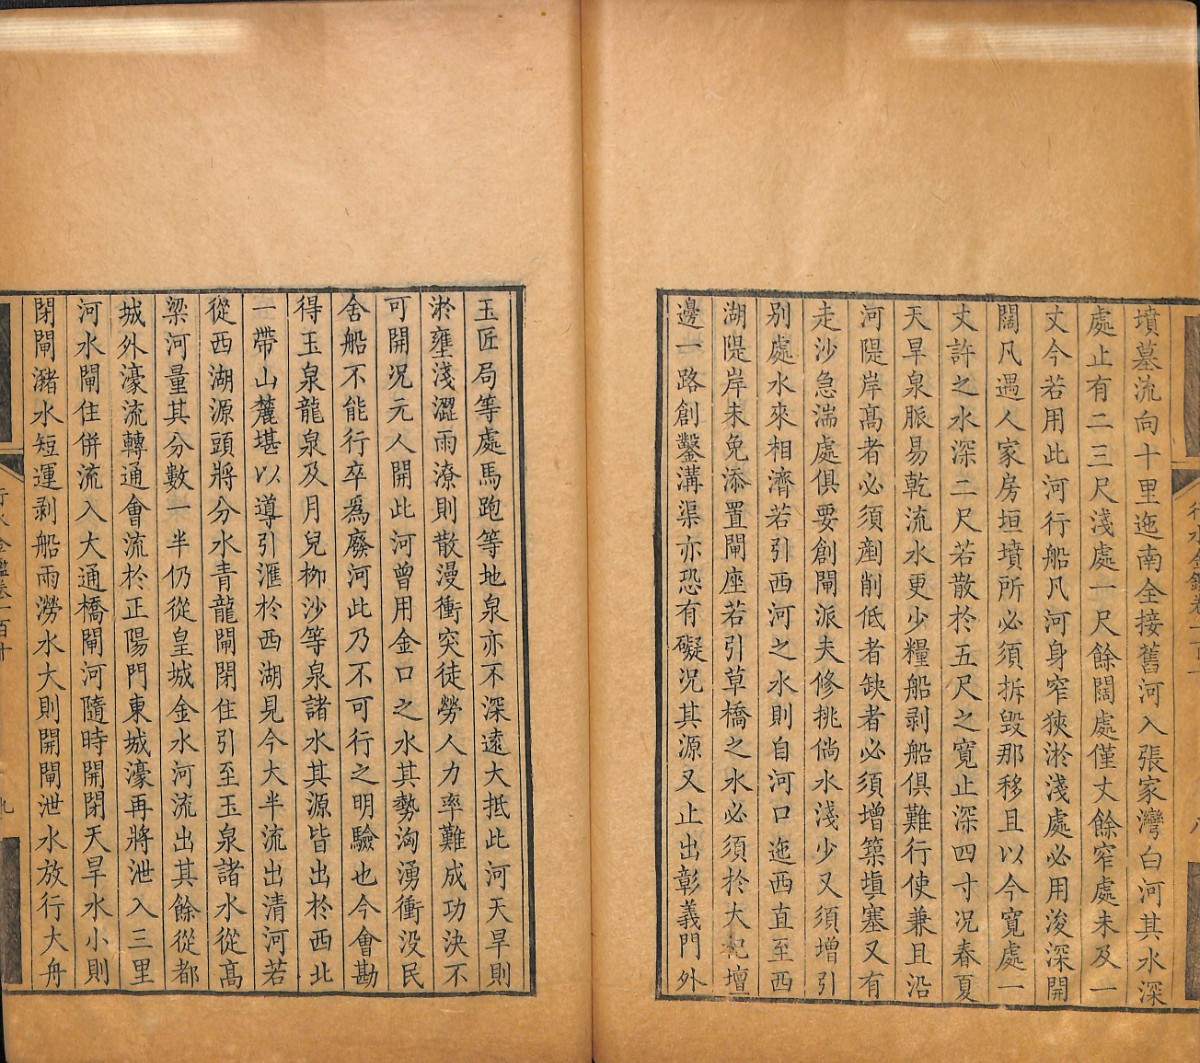 墳墓流向十里迤南全接舊河入張家灣白河其水深
處止有二三尺淺處一尺餘闊處僅丈餘窄處未及一
丈今若用此河行船凡河身窄狹淤淺處必用浚深開
闊凡遇人家房垣墳所必須拆毀那移且以今寬處一
丈許之水深二尺若散於五尺之寬止深四寸况春夏
天旱泉脈易乾流水更少糧船剥船俱難行使兼且沿
河隄岸高者必須剷削低者缺者必須增築塡塞又有
走沙急湍處俱要創閘派夫修挑倘水淺少又須增引
别處水來相濟若引西河之水則自河口迤西直至西
湖隄岸未免添置閘座若引草橋之水必須於大祀壇
邊一路創鑿溝渠亦恐有礙况其源又止出彰義門外
玉匠局等處馬跑等地泉亦不深遠大抵此河天旱則
淤壅淺澀雨潦則散漫衝突徒勞人力率難成功決不
可開况元人開此河曾用金口之水其勢洶湧衝没民
舍船不能行卒爲廢河此乃不可行之明驗也今會勘
得玉泉龍泉及月兒柳沙等泉諸水其源皆出於西北
一帶山麓堪以導引滙於西湖見今大半流出清河若
從西湖源頭將分水青龍閘閉住引至玉泉諸水從高
梁河量其分數一半仍從皇城金水河流出其餘從都
城外濠流轉通會流於正陽門東城濠再將泄入三里
河水閘住併流入大通橋閘河隨時開閉天旱水小則
閉閘瀦水短運剥船雨澇水大則開閘泄水放行大舟
行水金鑑卷一百十
九